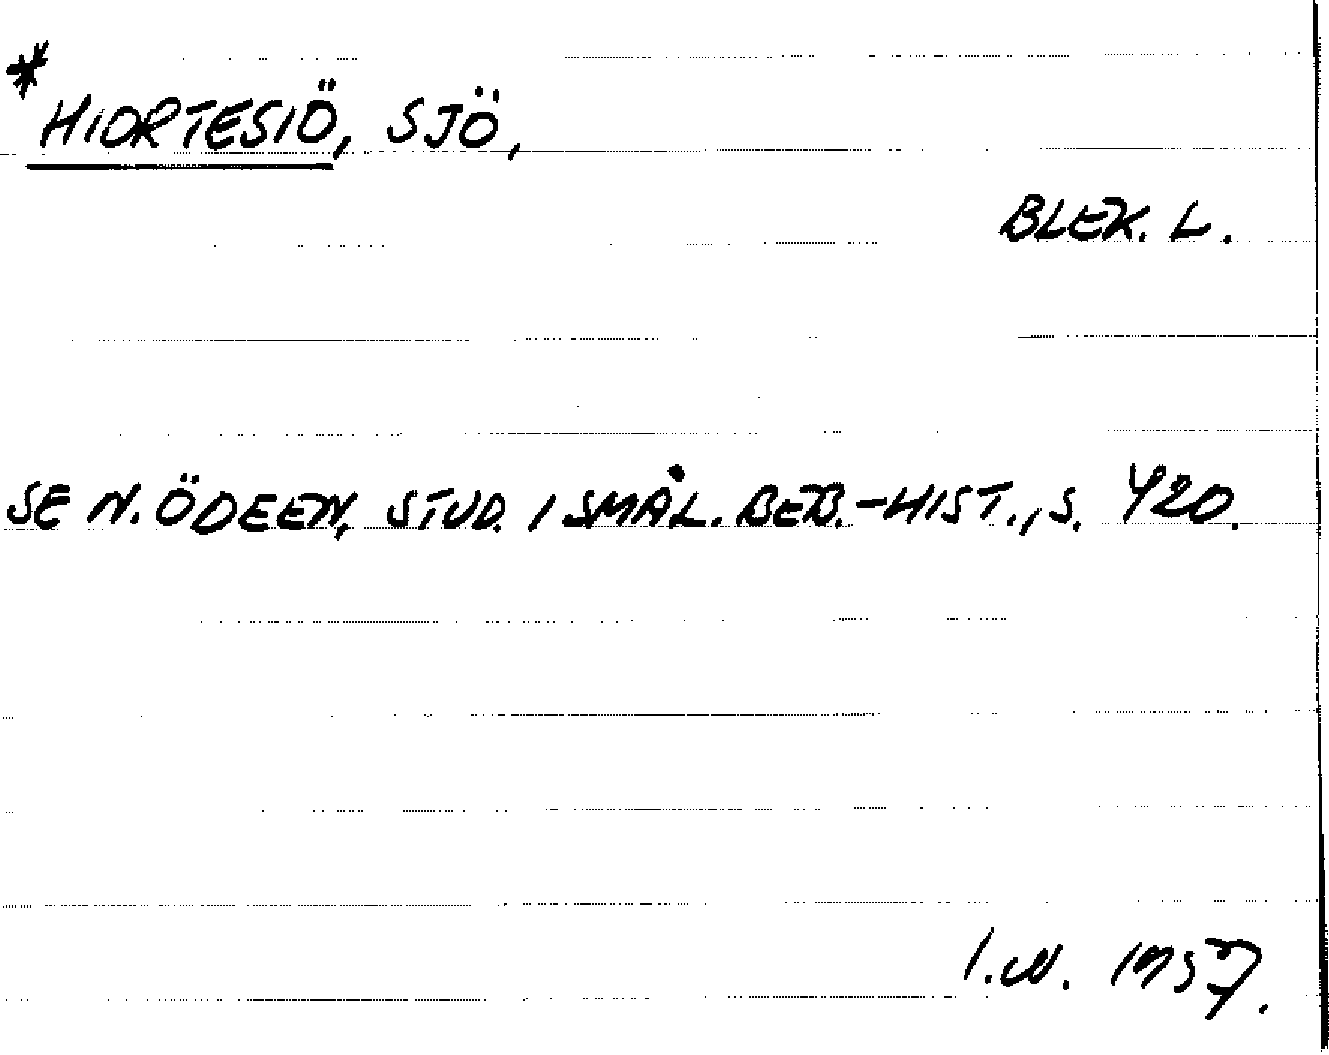 * HIORTESIÖ, SJÖ,
BLEK. L.
SE N. ÖDEEN, STUD. I SMÅL. BEB.-HIST., S. 420.
I.N. 1957.